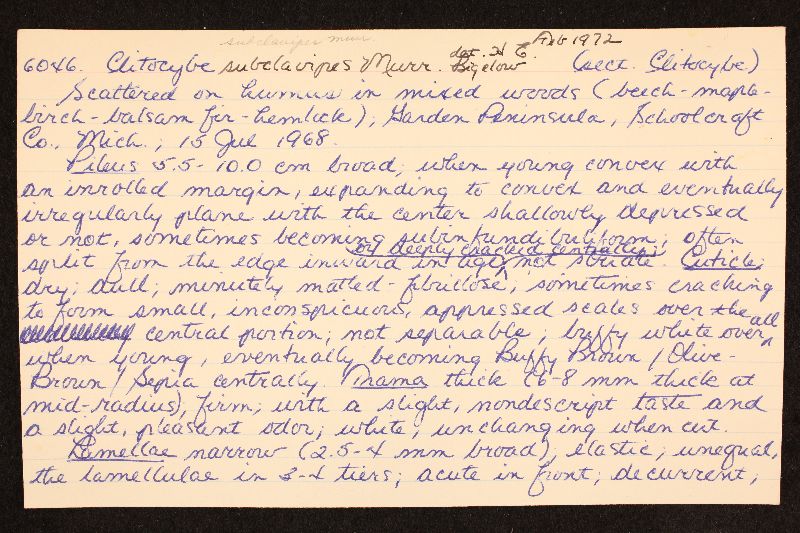 subclavipes murr.
det. H E Feb 1972
6046. Clitocybe subclavipes Murr. Bigelow (sect. Clitocybe)
Scattered on humus in mixed woods (beech-maple-
birch-balsam fir-hemlock); Garden Peninsula, Schoolcraft
Co., Mich.; 15 Jul 1968.
Pileus 5.5-10.0 cm broad; when young convex with
an inrolled margin, expanding to convex and eventually
irregularly plane with the center shallowly depressed
or not, sometimes becoming subinfundibuliform; often
or deeply cracked centrally;
split from the edge inward in age, not striate. Cuticle
dry; dull; minutely matted-fibrillose, sometimes cracking
to form small, inconspicuous, appressed scales over the
central portion; not separable, buffy white over all
when young, eventually becoming Buffy Brown/Olive-
Brown/Sepia centrally. Trama thick (6-8 mm thick at
mid-radius), firm; with a slight, nondescript taste and
a slight, pleasant odor; white, unchanging when cut.
Lamellae narrow (2.5-4 mm broad), elastic; unequal,
the lamellulae in 3-4 tiers; acute in front; decurrent;